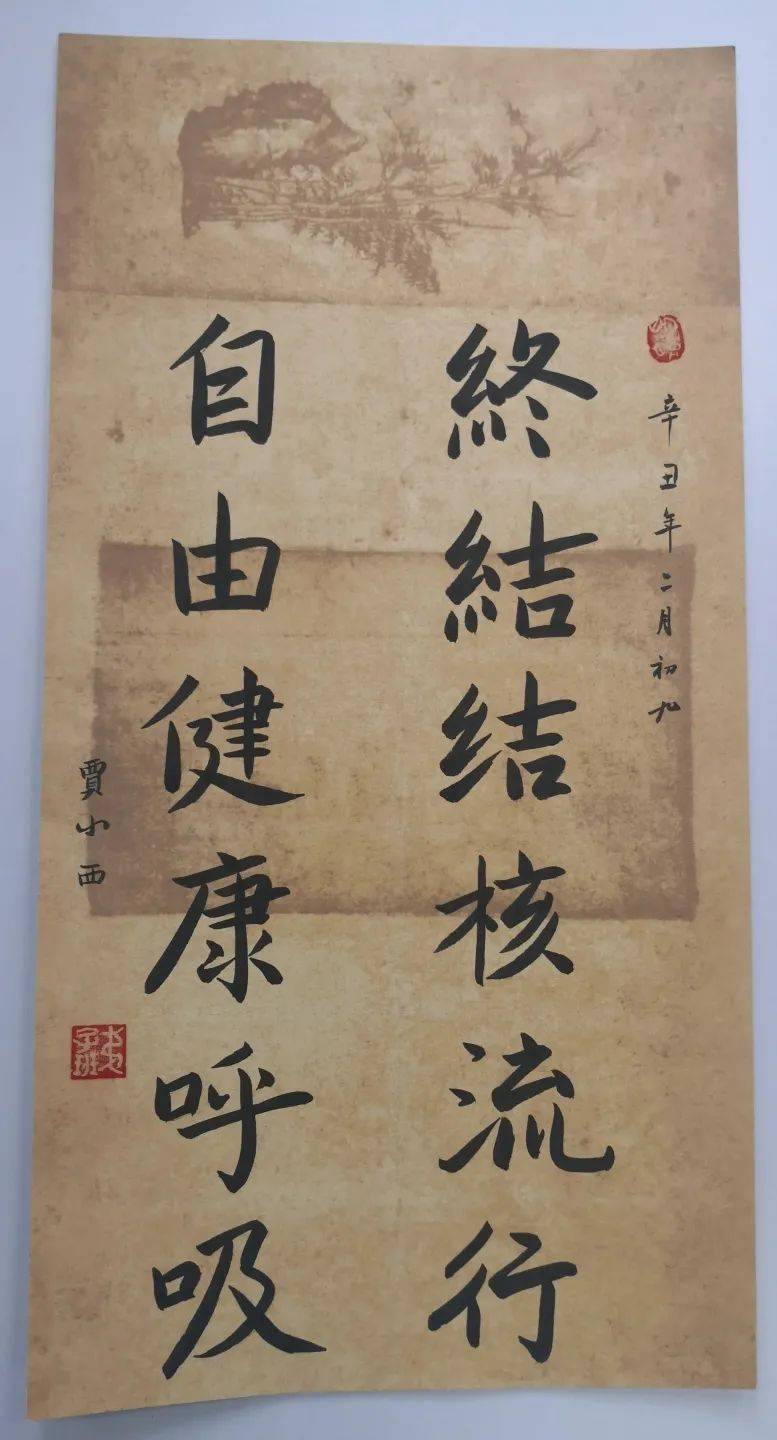 辛丑年二月初九
終結结核流行
自由健康呼吸
賈小西